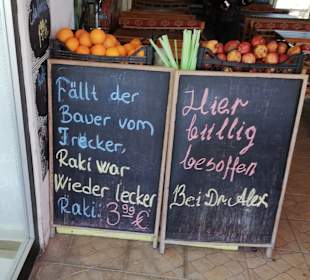 Fällt der
Bauer vom
Trecker,
Raki war
Wieder lecker
Raki 3.99 €
Hier
billig
besoffen
Bei Dr. Alex